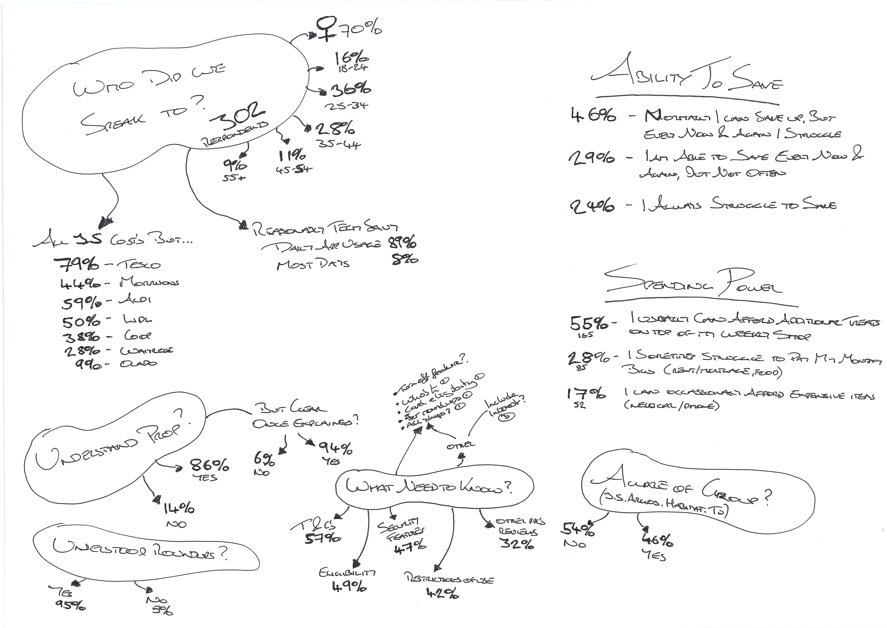 WHO DID WE
SPEAK TO?
302
RESPONDENTS
♀ 70%
16%
18-24
36%
25-34
28%
35-44
11%
45-54
9%
55+
ALL JS CUST'S BUT...
79% - TESCO
44% - MORRISONS
59% - ALDI
50% - LIDL
38% - COOP
28% - WAITROSE
9% - OCADO
REASONABLY TECH SAVVY
DAILY APP USAGE 89%
MOST DAYS 8%
ABILITY TO SAVE
46% - NORMALLY I CAN SAVE UP, BUT
EVERY NOW & AGAIN I STRUGGLE
29% - I AM ABLE TO SAVE EVERY NOW &
AGAIN, BUT NOT OFTEN
24% - I ALWAYS STRUGGLE TO SAVE
SPENDING POWER
55% - I USUALLY CAN AFFORD ADDITIONAL TREATS
165 ON TOP OF MY WEEKLY SHOP
28% - I SOMETIMES STRUGGLE TO PAY MY MONTHLY
85 BILLS (RENT/MORTGAGE, FOOD)
17% I CAN OCCASSIONALLY AFFORD EXPENSIVE ITEM
52 (NEW CAR/PHONE)
UNDERSTAND PROP?
86%
YES
14%
NO
BUT CLEAR
ONCE EXPLAINED?
6%
NO
94%
YES
UNDERSTOOD ROUNDUPS?
YES
95%
NO
5%
WHAT NEED TO KNOW?
• Turn off feature?
• Who's it
• Card
• Set roundups ①
• All shops? ①
OTHER
Include
interest?
T&C'S
57%
ELIGIBILITY
49%
SECURITY
FEATURES
47%
RESTRICTIONS OF USE
42%
OTHER PPL'S
REVIEWS
32%
AWARE OF GROUP?
(J.S. ARGOS. HABITAT. TU)
54%
NO
46%
YES